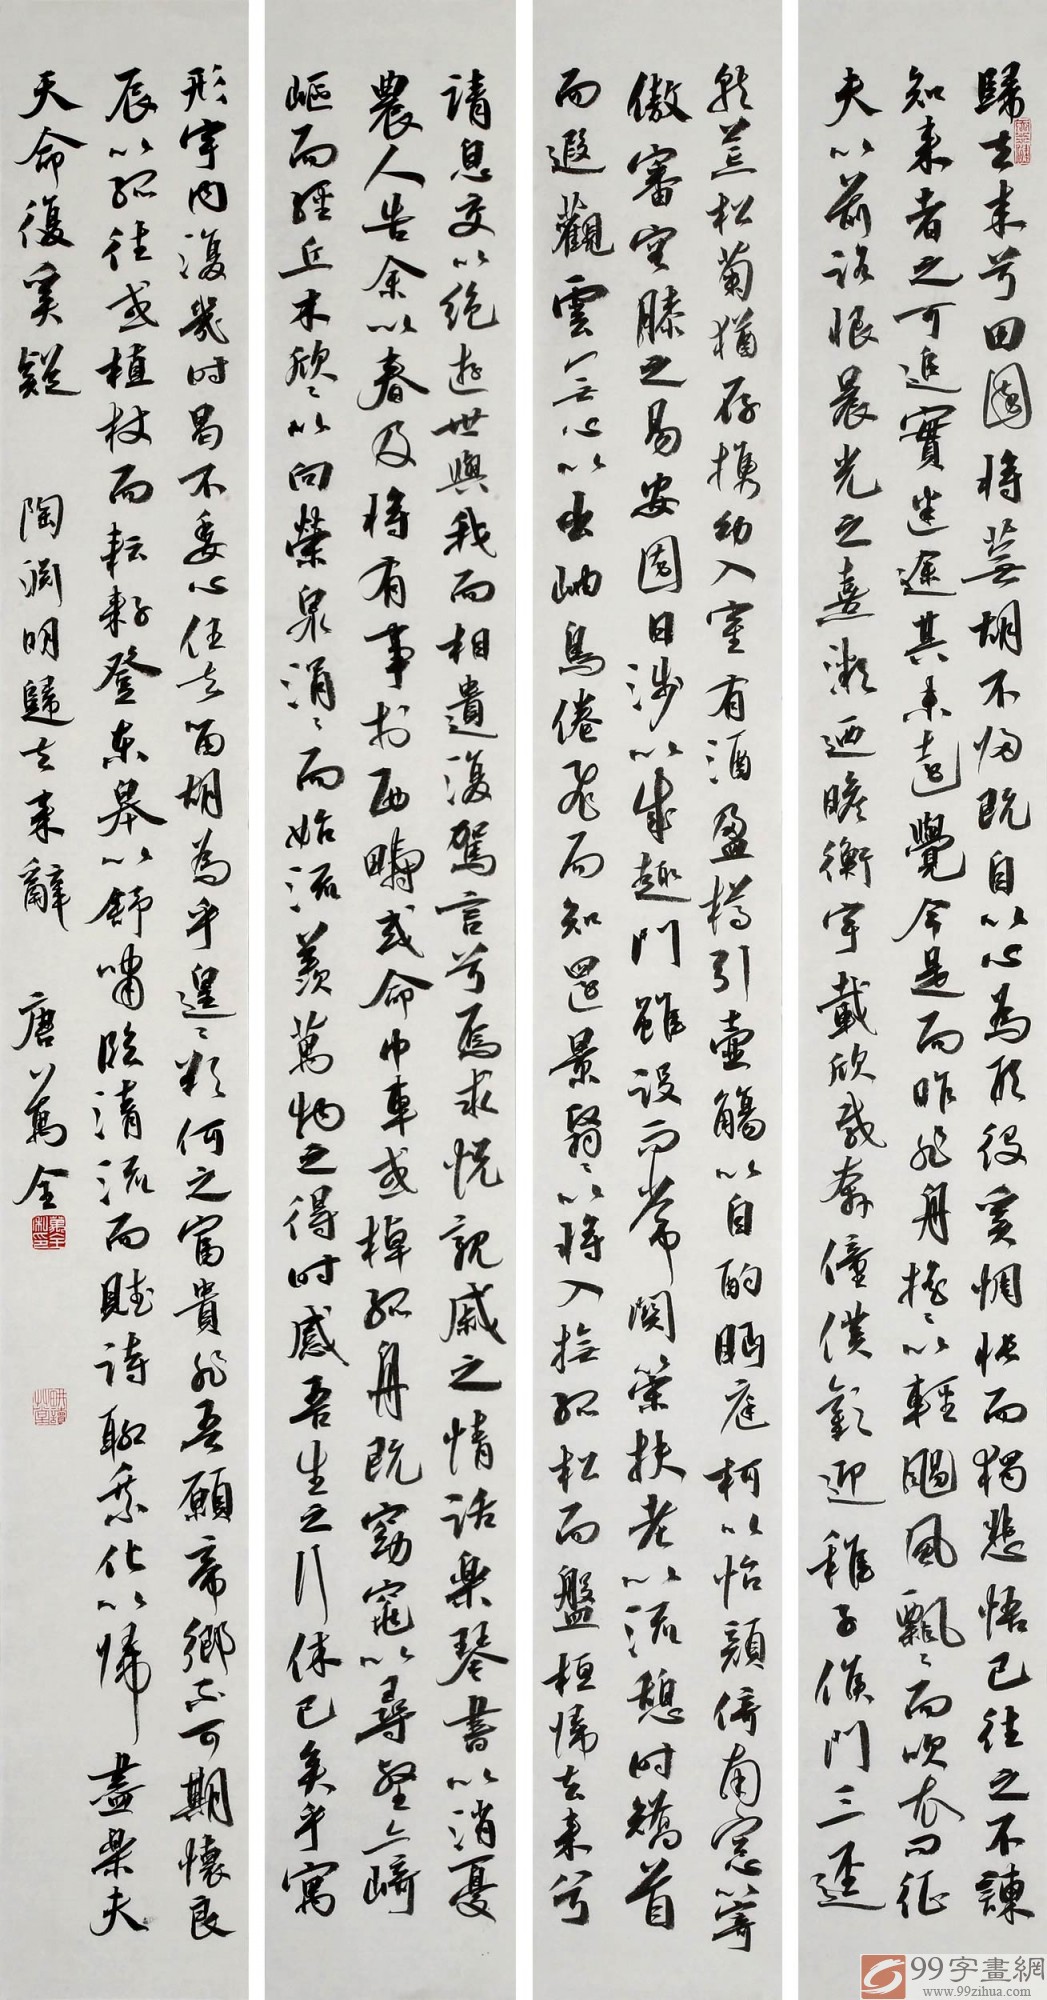 歸去来兮田園将蕪胡不归既自以心為形役奚惆悵而獨悲悟已往之不諫
知来者之可追實迷途其未遠覺今是而昨非舟搖〻以輕颺風飄〻而吹衣问征
夫以前路恨晨光之熹微迺瞻衡宇載欣載奔僮僕歡迎稚子候門三逕
就荒松菊猶存携幼入室有酒盈樽引壺觴以自酌眄庭柯以怡顔倚南窓以寄
傲審容膝之易安園日涉以成趣门雖設而常関策扶老以流憩时矯首
而遐觀雲无心以出岫鳥倦飛而知還景翳〻以将入撫孤松而盤桓歸去来兮
請息交以绝遊世與我而相遺復駕言兮焉求悦親戚之情話樂琴書以消憂
農人告余以春及将有事於西疇或命巾車或棹孤舟既窈窕以尋壑亦崎
嶇而經丘木欣〻以向榮泉涓〻而始流羡萬物之得时感吾生之行休已矣乎寓
形宇内復幾时曷不委心任去留胡為乎遑〻欲何之富貴非吾願帝鄉不可期懷良
辰以孤往或植杖而耘耔登東皋以舒嘯臨清流而賦詩聊乘化以歸盡樂夫
天命復奚疑 陶渊明歸去来辭 唐萬全
99字畫網
www.99zihua.com